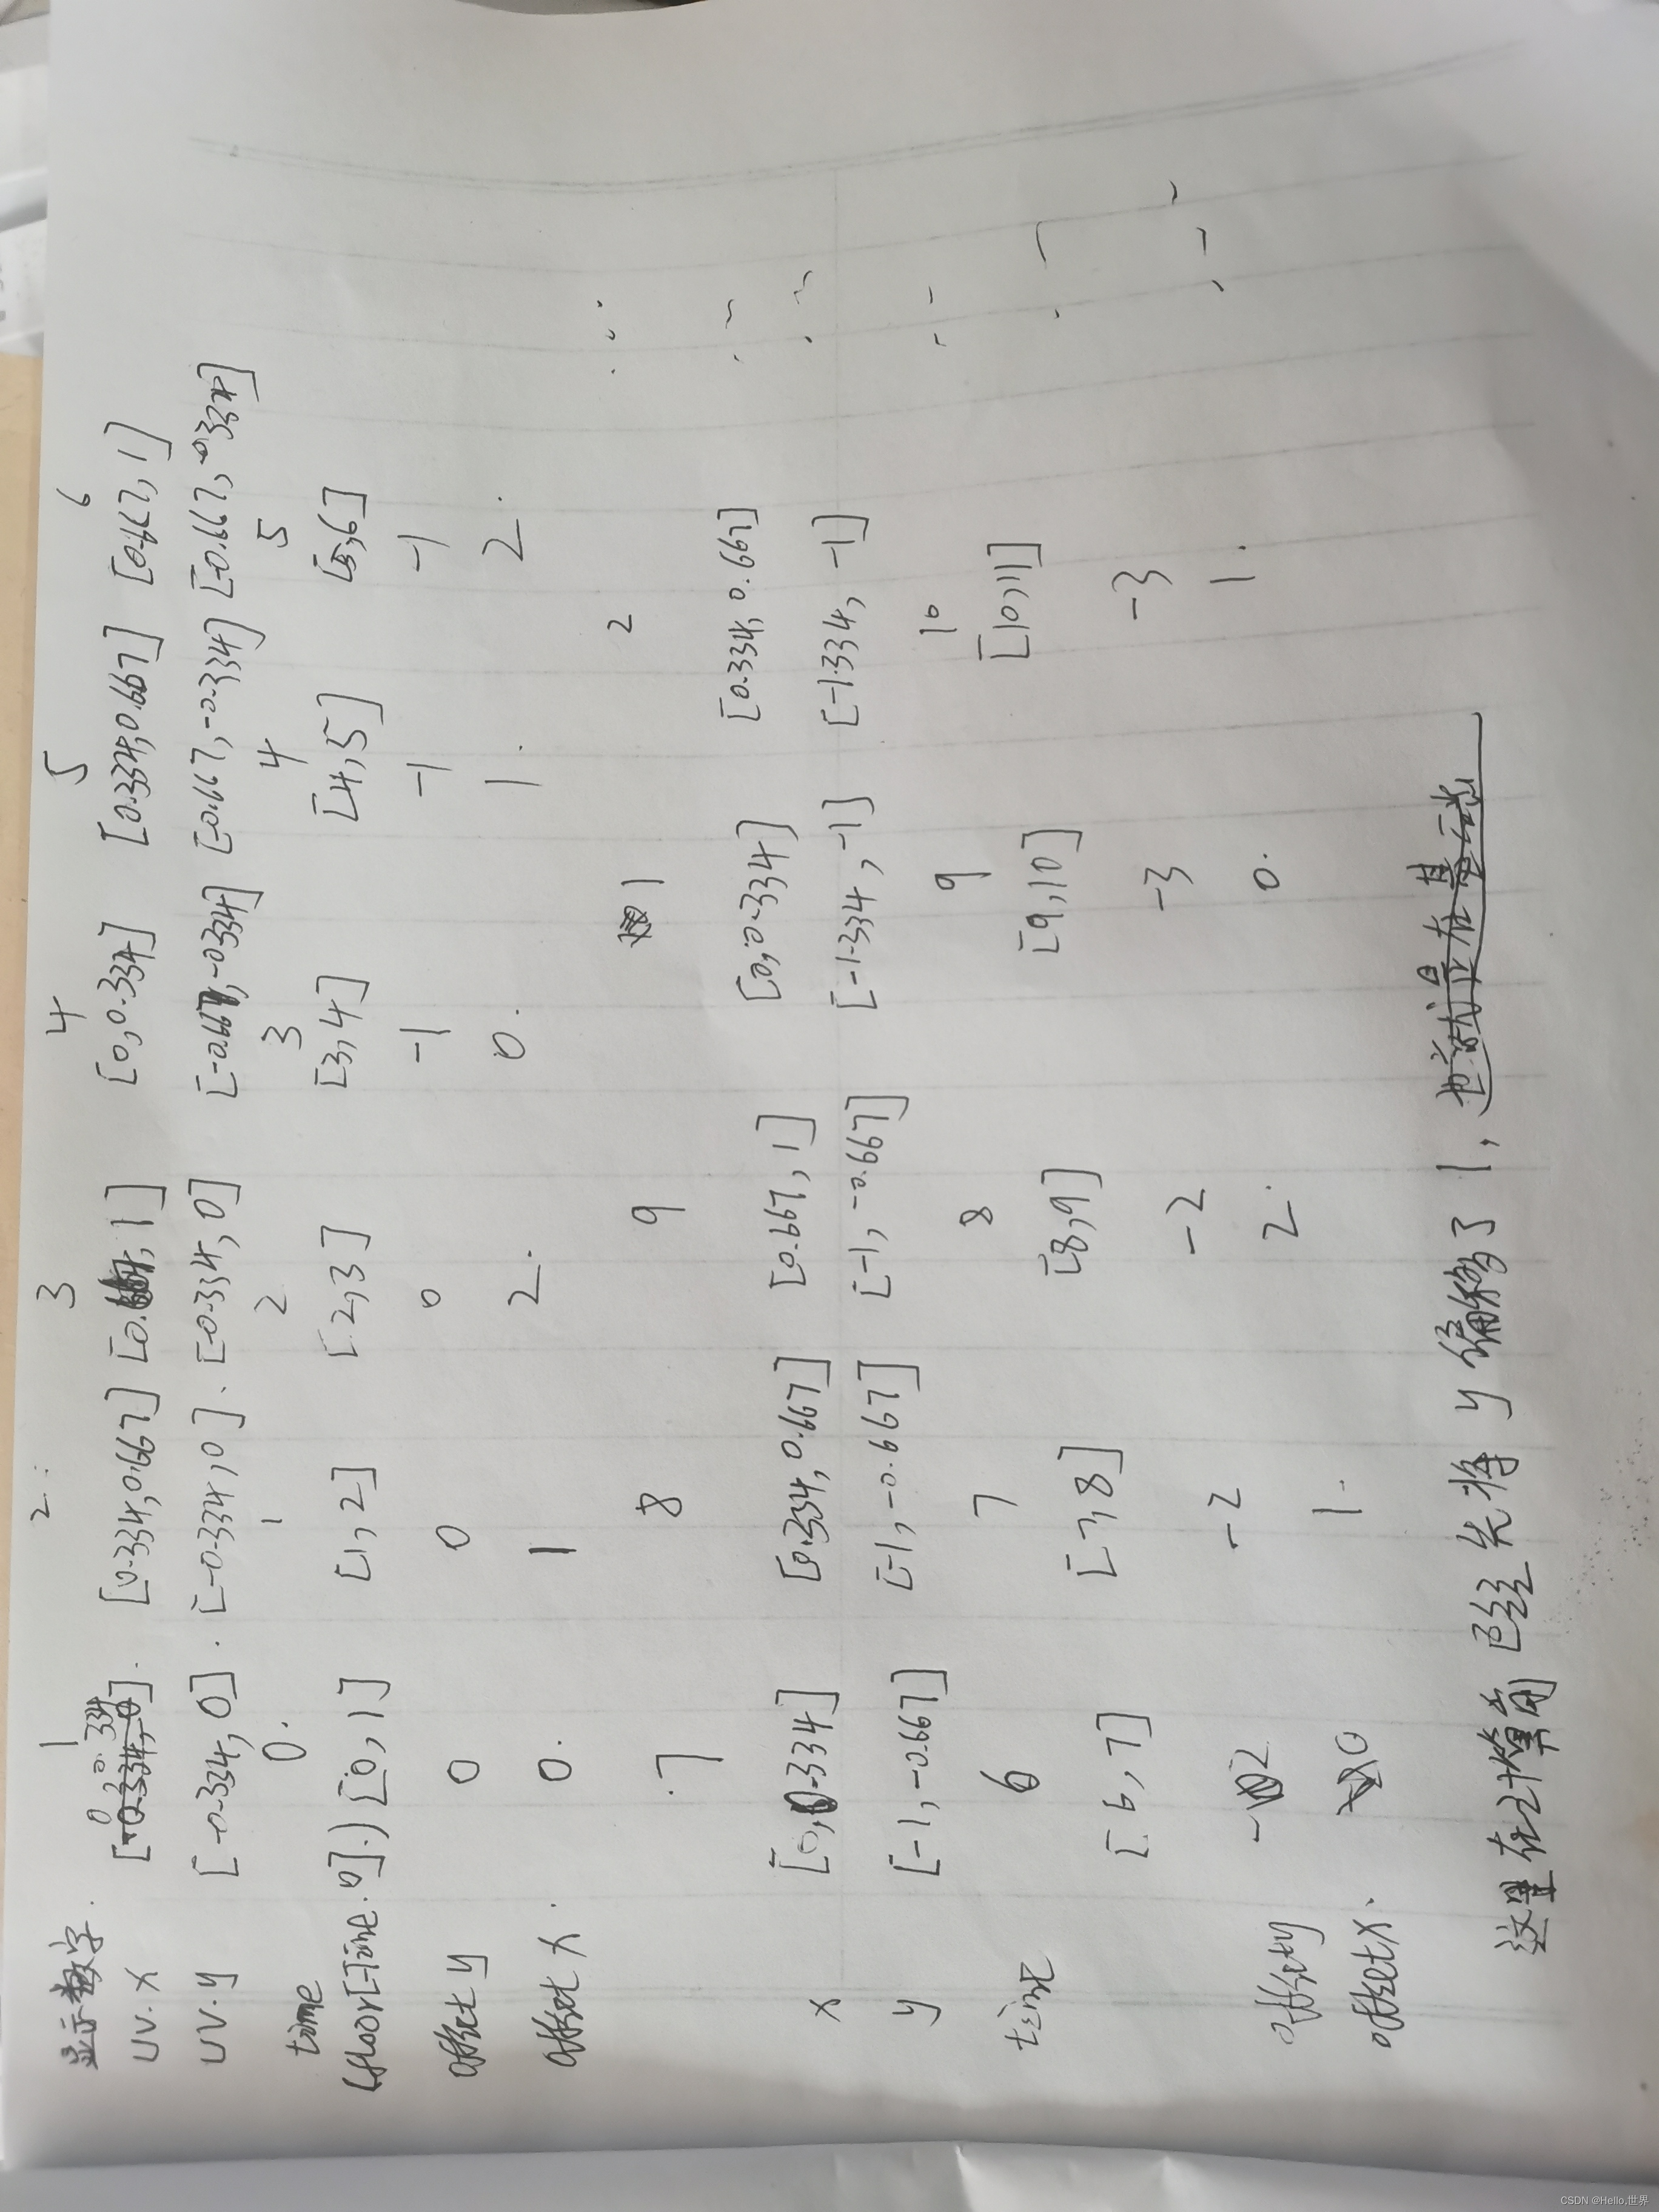 显示数字. 1 2. 3 4 5 6
UV.x [0, 0.334]. [0.334,0.667] [0.667,1] [0,0.334] [0.334,0.667] [0.667,1]
UV.y [-0.334,0]. [-0.334,0]. [-0.334,0] [-0.667,-0.334] [-0.667,-0.334] [-0.667,-0.334]
time 0. 1 2 3 4 5
(floor[Time.y].) [0,1] [1,2] [2,3] [3,4] [4,5] [5,6]
offset y 0 0 0 -1 -1 -1
offset x. 0. 1 2. 0. 1. 2.
7 8 9 1 2 ...
x [0,0.334] [0.334,0.667] [0.667,1] [0,0.334] [0.334,0.667]
y [-1,-0.667] [-1,-0.667] [-1,-0.667] [-1.334,-1] [-1.334,-1]
time 6 7 8 9 10
[6,7] [7,8] [8,9] [9,10] [10,11]
offset y -2 -2 -2 -3 -3
offset x. 0 1. 2. 0. 1.
这里在计算前已经先将y偏移了1,也就是在基础
CSDN @Hello,世界